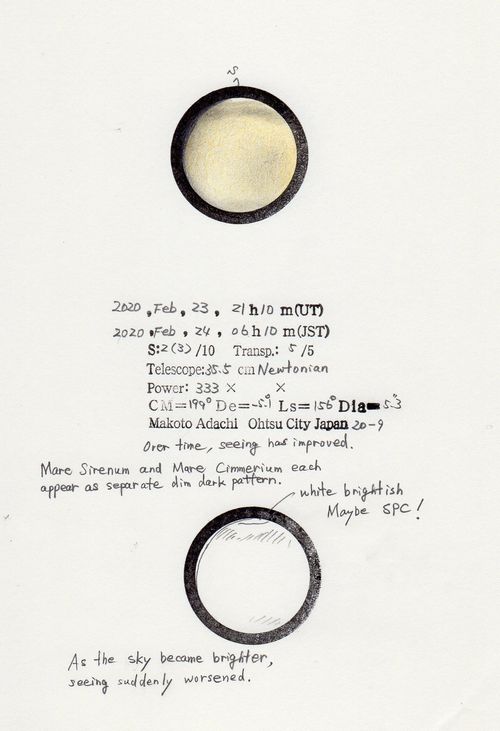 S
2020, Feb, 23, 21h10 m(UT)
2020, Feb, 24, 06h10 m(JST)
S:2(3)/10 Transp.: 5/5
Telescope:35.5 cm Newtonian
Power: 333 × ×
CM=199° De=-5.1° Ls=156° Dia=5.3"
Makoto Adachi Ohtsu City Japan 20-9
Over time, seeing has improved.
Mare Sirenum and Mare Cimmerium each
appear as separate dim dark pattern.
white brightish
Maybe SPC!
As the sky became brighter,
seeing suddenly worsened.